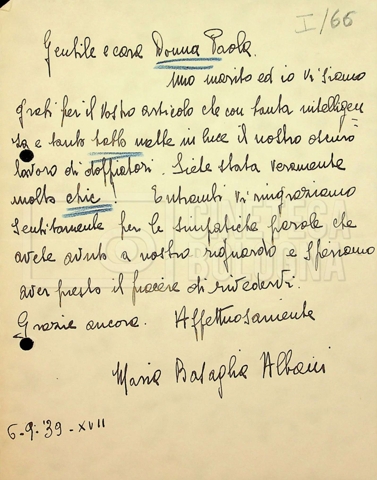 I/66
Gentile e cara Donna Paola.
Mio marito ed io Vi siamo
grati per il Vostro articolo che con tanta intelligen
za e tanto tatto mette in luce il nostro oscuro
lavoro di doppiatori. Siete stata veramente
molto chic! Entrambi Vi ringraziamo
sentitamente per le simpatiche parole che
avete avuto a nostro riguardo e speriamo
aver presto il piacere di rivedervi.
Grazie ancora. Affettuosamente
Maria Basaglia Albani
6-9-'39-XVII
CINETECA
BOLOGNA